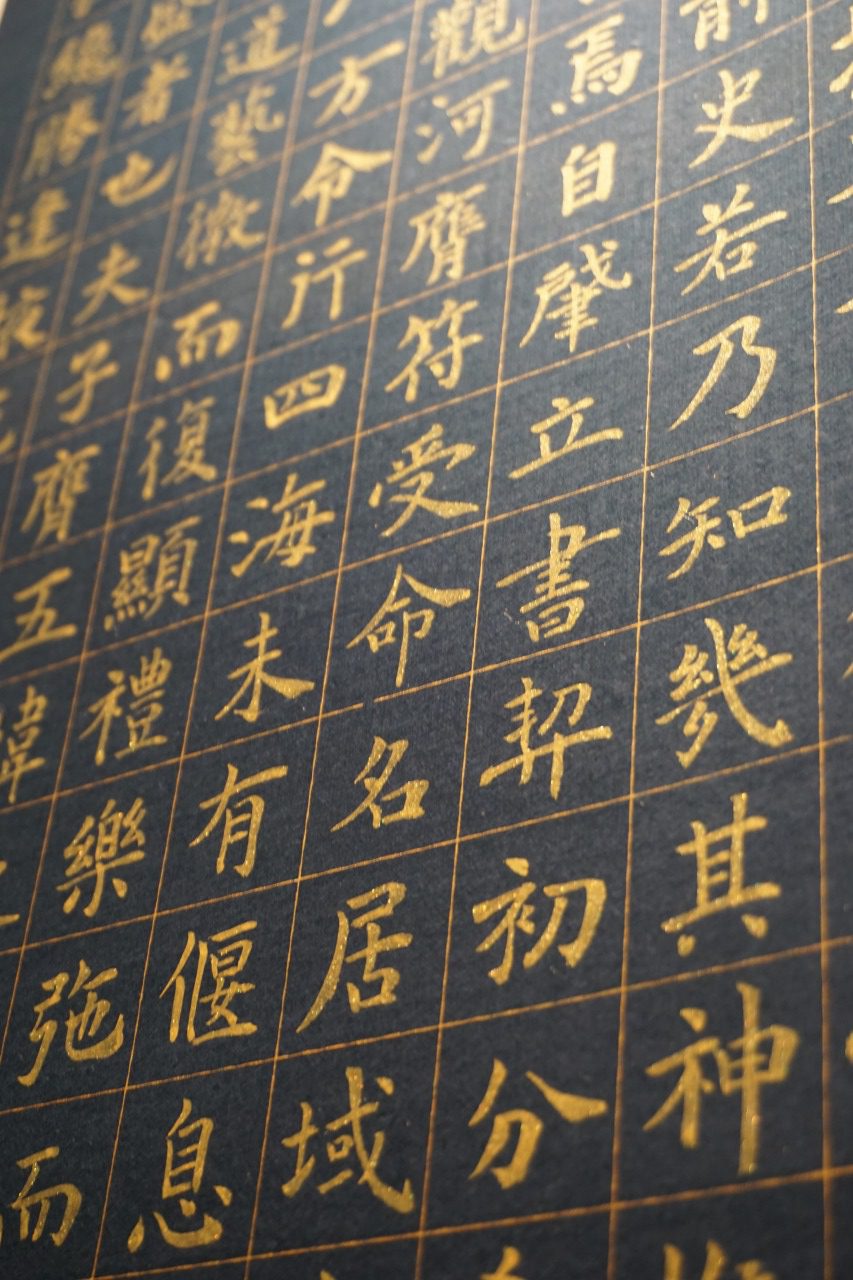 前史若乃知幾其神
焉自肇立書契初分
觀河膺符受命名居域
方令行四海未有偃息
道藝微而復顯禮樂弛而
者也夫子膺五緯
勝